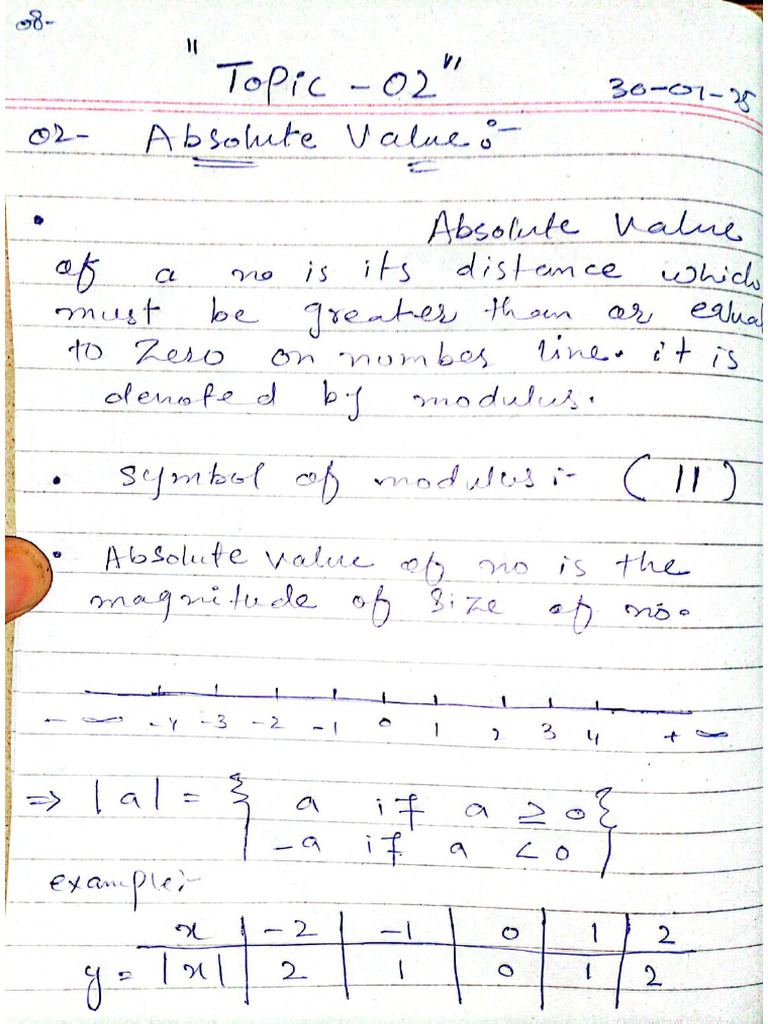 08-
"Topic - 02"
30-01-25
02- Absolute Value :-
• Absolute Value
of a no is its distance which
must be greater than or equal
to Zero on number line. it is
denoted by modulus.
• Symbol of modulus :- ( || )
• Absolute value of no is the
magnitude of Size of no.
- ∞ -4 -3 -2 -1 0 1 2 3 4 + ∞
⇒ |a| = { a if a ≥ 0 }
{ -a if a < 0 }
example:-
x | -2 | -1 | 0 | 1 | 2
y = |x| | 2 | 1 | 0 | 1 | 2